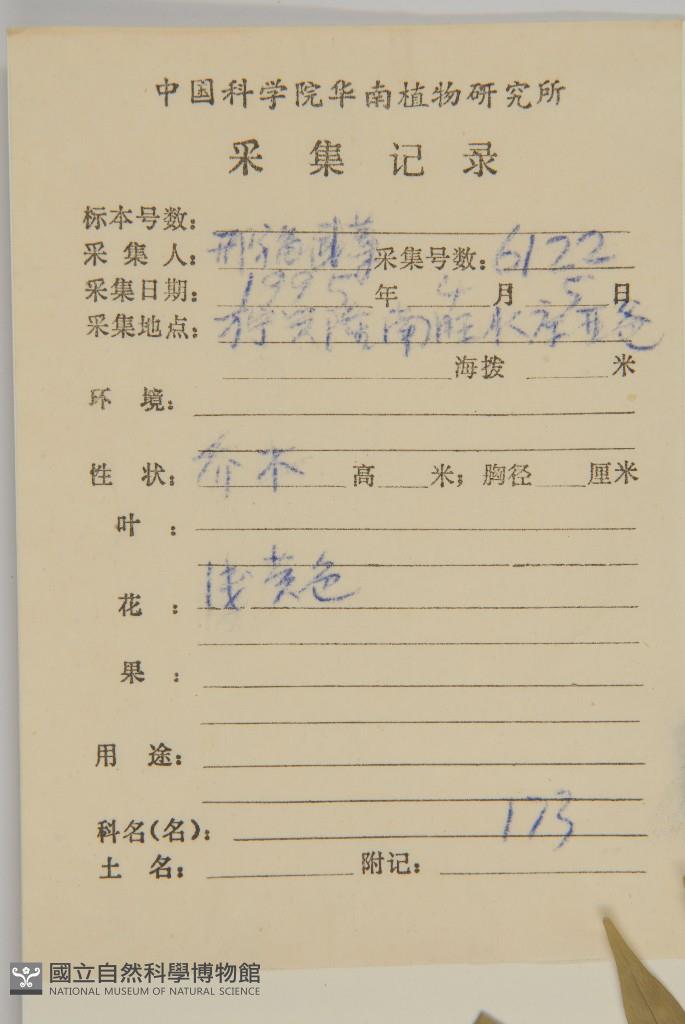 中国科学院华南植物研究所
采集记录
标本号数：
采集人：邢福武 采集号数：6122
采集日期：1995年4月5日
采集地点：兴隆南旺水库
海拨 米
环境：
性状：乔木 高 米；胸径 厘米
叶：
花：浅黄色
果：
用途：
173
科名(名)：
土名： 附记：
國立自然科學博物館
NATIONAL MUSEUM OF NATURAL SCIENCE